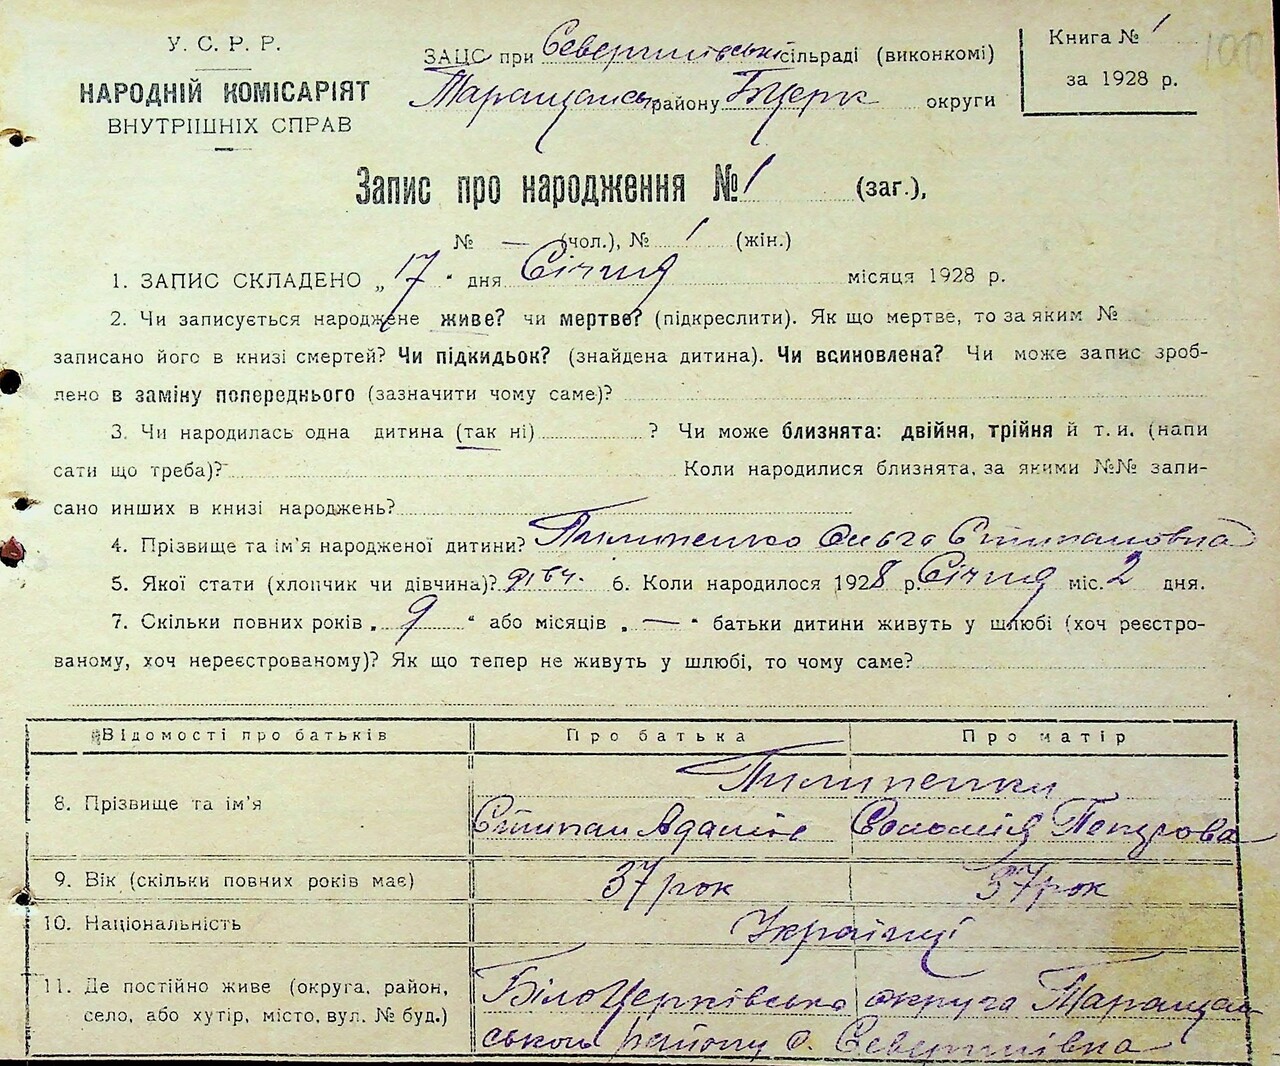 У. С. Р. Р.
НАРОДНІЙ КОМІСАРІЯТ
ВНУТРІШНІХ СПРАВ
ЗАЦС при Северинівські сільраді (виконкомі)
Таращансь району БЦерк округи
Книга № 1
за 1928 р.
100
Запис про народження № 1 (заг.),
№ — (чол.), № 1 (жін.)
1. ЗАПИС СКЛАДЕНО „ 17 “ дня Січня місяця 1928 р.
2. Чи записується народжене живе? чи мертве? (підкреслити). Як що мертве, то за яким №
записано його в книзі смертей? Чи підкидьок? (знайдена дитина). Чи всиновлена? Чи може запис зроб-
лено в заміну попереднього (зазначити чому саме)?
3. Чи народилась одна дитина (так ні) ? Чи може близнята: двійня, трійня й т. и. (напи
сати що треба)? Коли народилися близнята, за якими №№ запи-
сано инших в книзі народжень?
4. Прізвище та ім'я народженої дитини? Пилипенко Ольга Степановна
5. Якої стати (хлопчик чи дівчина)? дівч. 6. Коли народилося 1928 р. Січня міс. 2 дня.
7. Скільки повних років „ 9 “ або місяців „ — “ батьки дитини живуть у шлюбі (хоч реєстро-
ваному, хоч нереєстрованому)? Як що тепер не живуть у шлюбі, то чому саме?
Відомості про батьків Про батька Про матір
Пилипенки
8. Прізвище та ім'я Степан Адамів Соломія
9. Вік (скільки повних років має) 37 рок 37 рок
10. Національність Українці
11. Де постійно живе (округа, район, БілоЦерківсько округа Таращан
село, або хутір, місто, вул. № буд.) ського району с. Северинівка